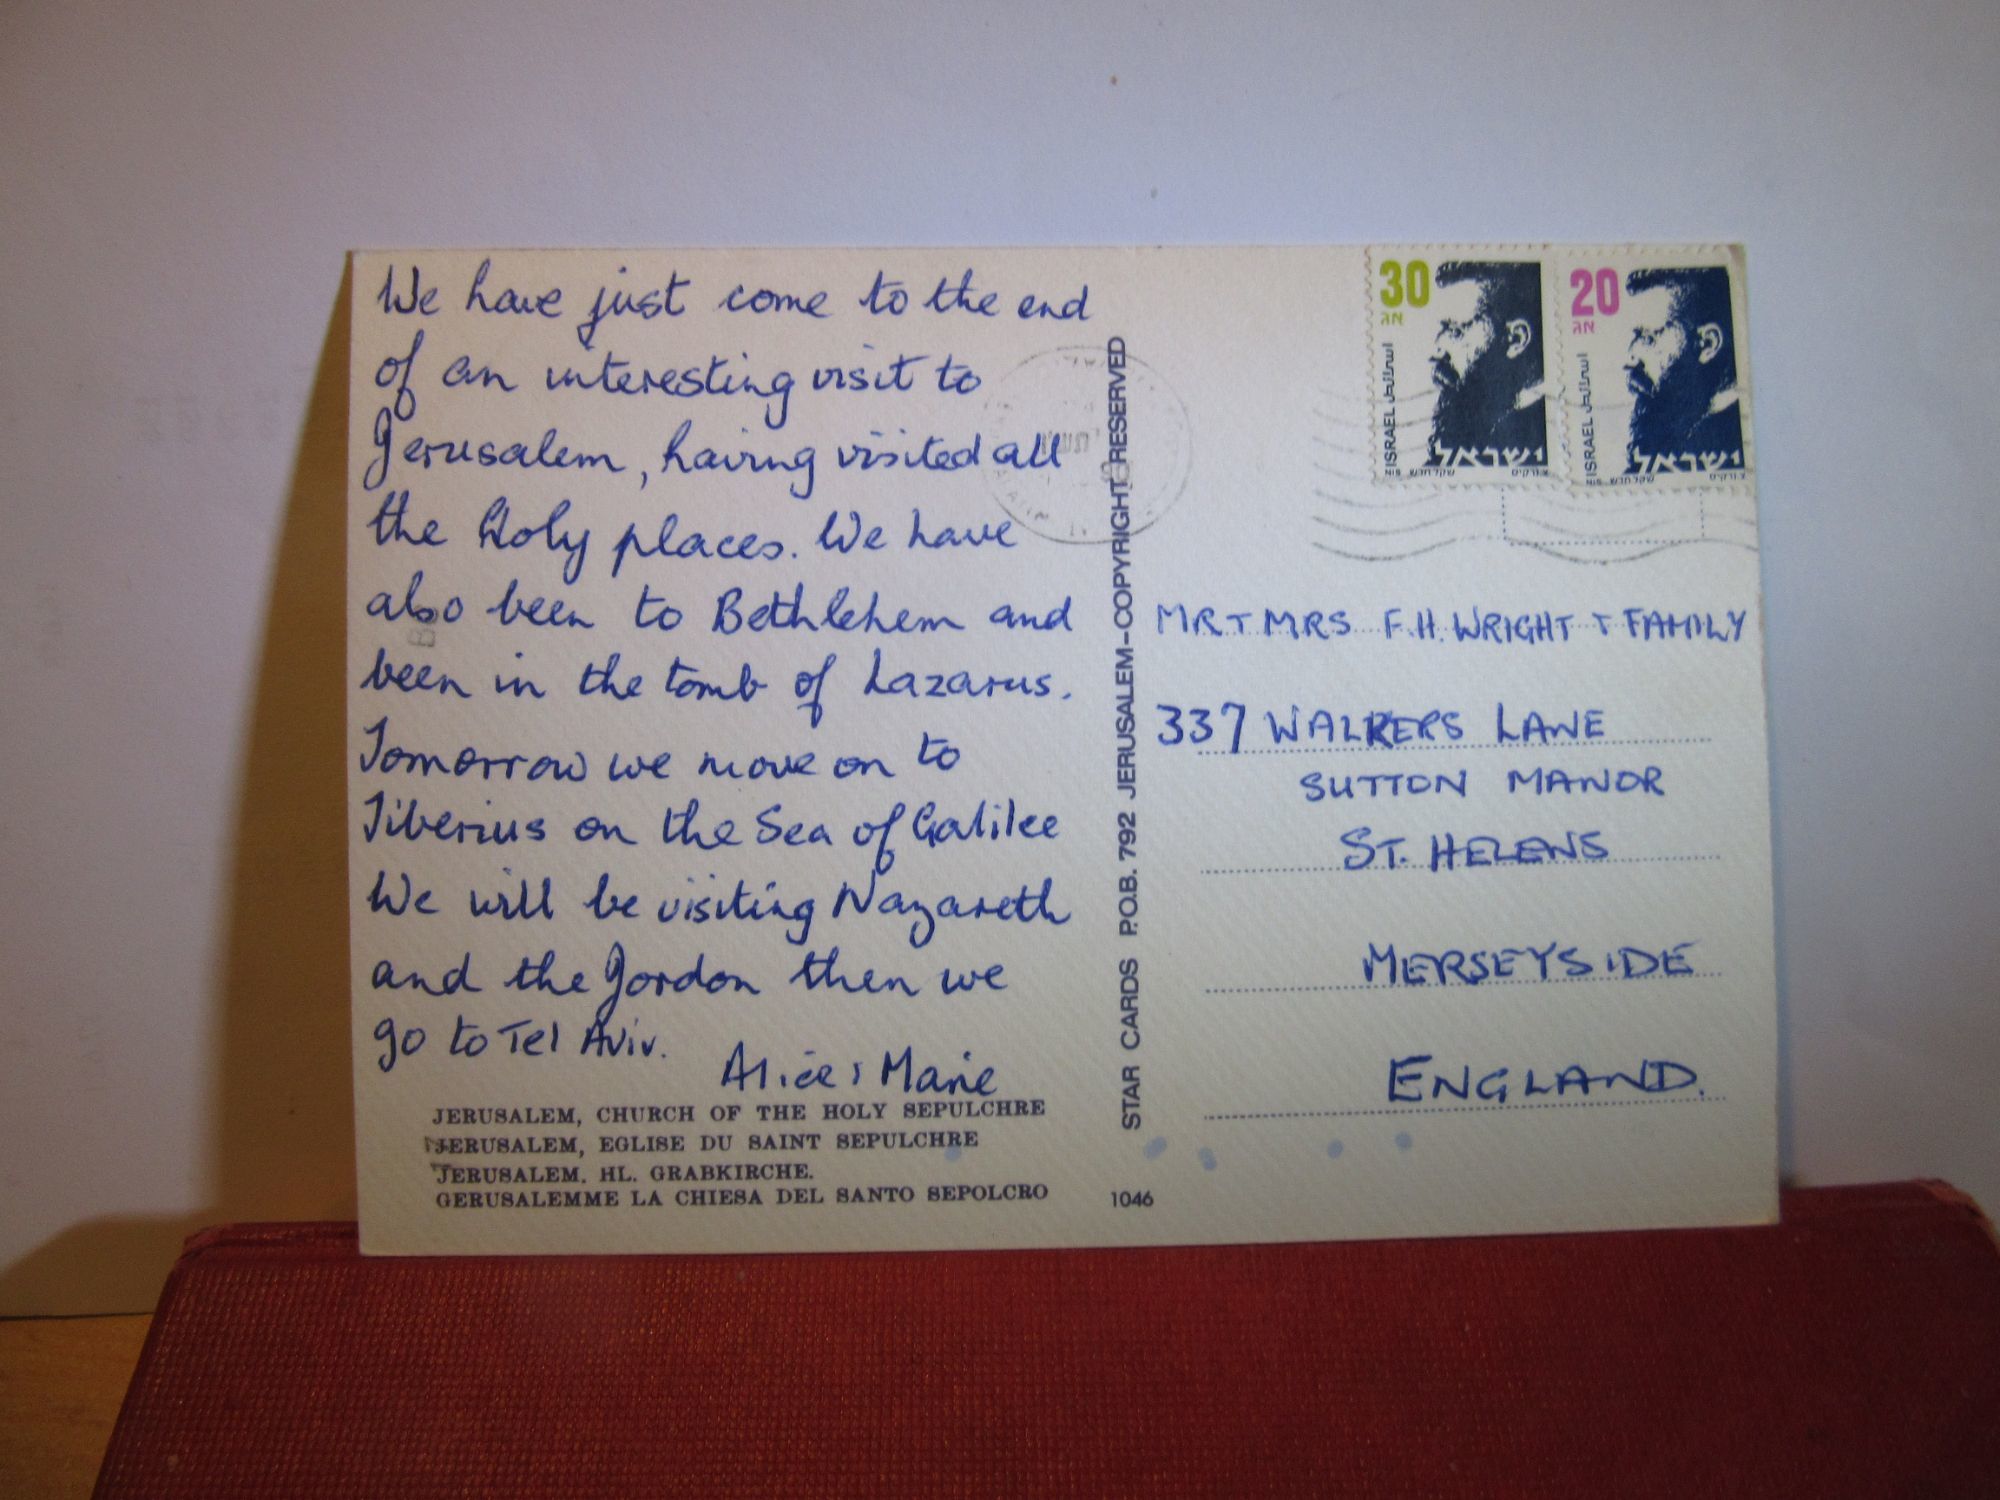 We have just come to the end
of an interesting visit to
Jerusalem, having visited all
the Holy places. We have
also been to Bethlehem and
been in the tomb of Lazarus.
Tomorrow we move on to
Tiberius on the Sea of Galilee
We will be visiting Nazareth
and the Jordon then we
go to Tel Aviv.
Alice & Marie
JERUSALEM, CHURCH OF THE HOLY SEPULCHRE
JERUSALEM, EGLISE DU SAINT SEPULCHRE
JERUSALEM. HL. GRABKIRCHE.
GERUSALEMME LA CHIESA DEL SANTO SEPOLCRO
STAR CARDS P.O.B. 792 JERUSALEM-COPYRIGHT RESERVED
1046
30
אג
ISRAEL اسرائيل
ישראל
שקל חדש NIS
20
אג
ISRAEL اسرائيل
ישראל
שקל חדש NIS
MR + MRS F.H. WRIGHT + FAMILY
337 WALKERS LANE
SUTTON MANOR
ST. HELENS
MERSEYSIDE
ENGLAND.